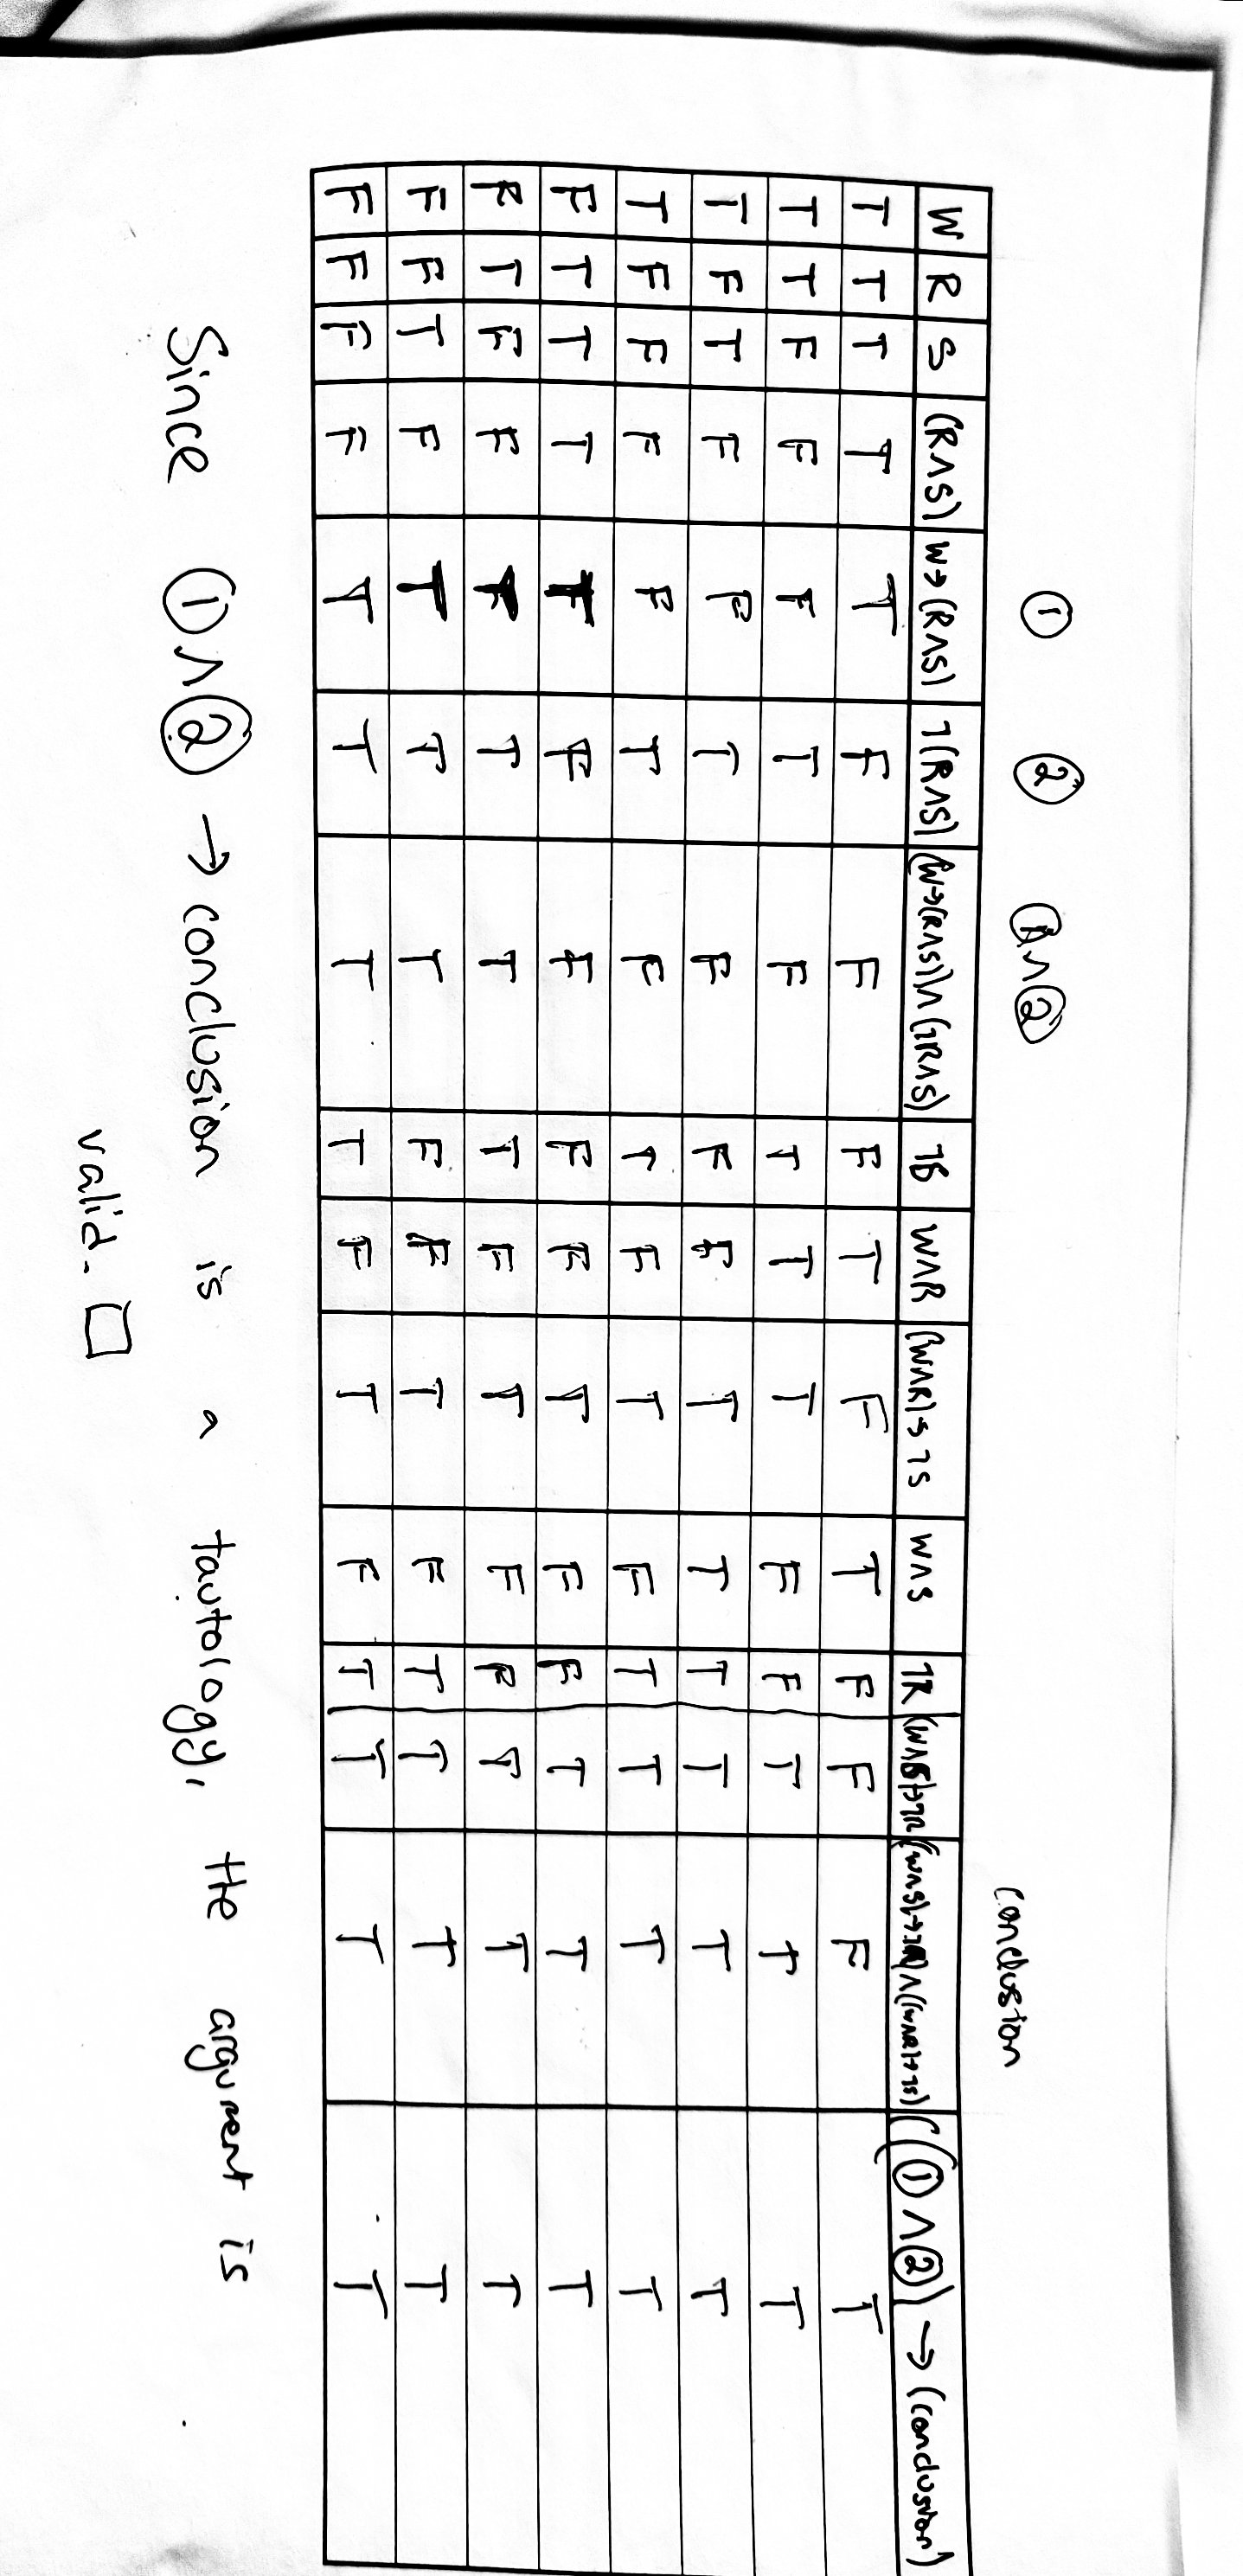 ① ② ①∧②
conclusion
W R S (R∧S) W→(R∧S) ¬(R∧S) (W→(R∧S))∧(¬R∧S) ¬S W∧R (W∧R)→¬S W∧S ¬R (W∧S)→¬R ((W∧S)→¬R)∧((W∧R)→¬S) ((①∧②)→(conclusion)
T T T T T F F F T F T F F F T
T T F F F T F T T T F F T T T
T F T F F T F F F T T T T T T
T F F F F T F T F T F T T T T
F T T T T F F F F T F F T T T
F T F F T T T T F T F F T T T
F F T F T T T F F T F T T T T
F F F F T T T T F T F T T T T
Since ①∧② → conclusion is a tautology, the argument is
valid. □